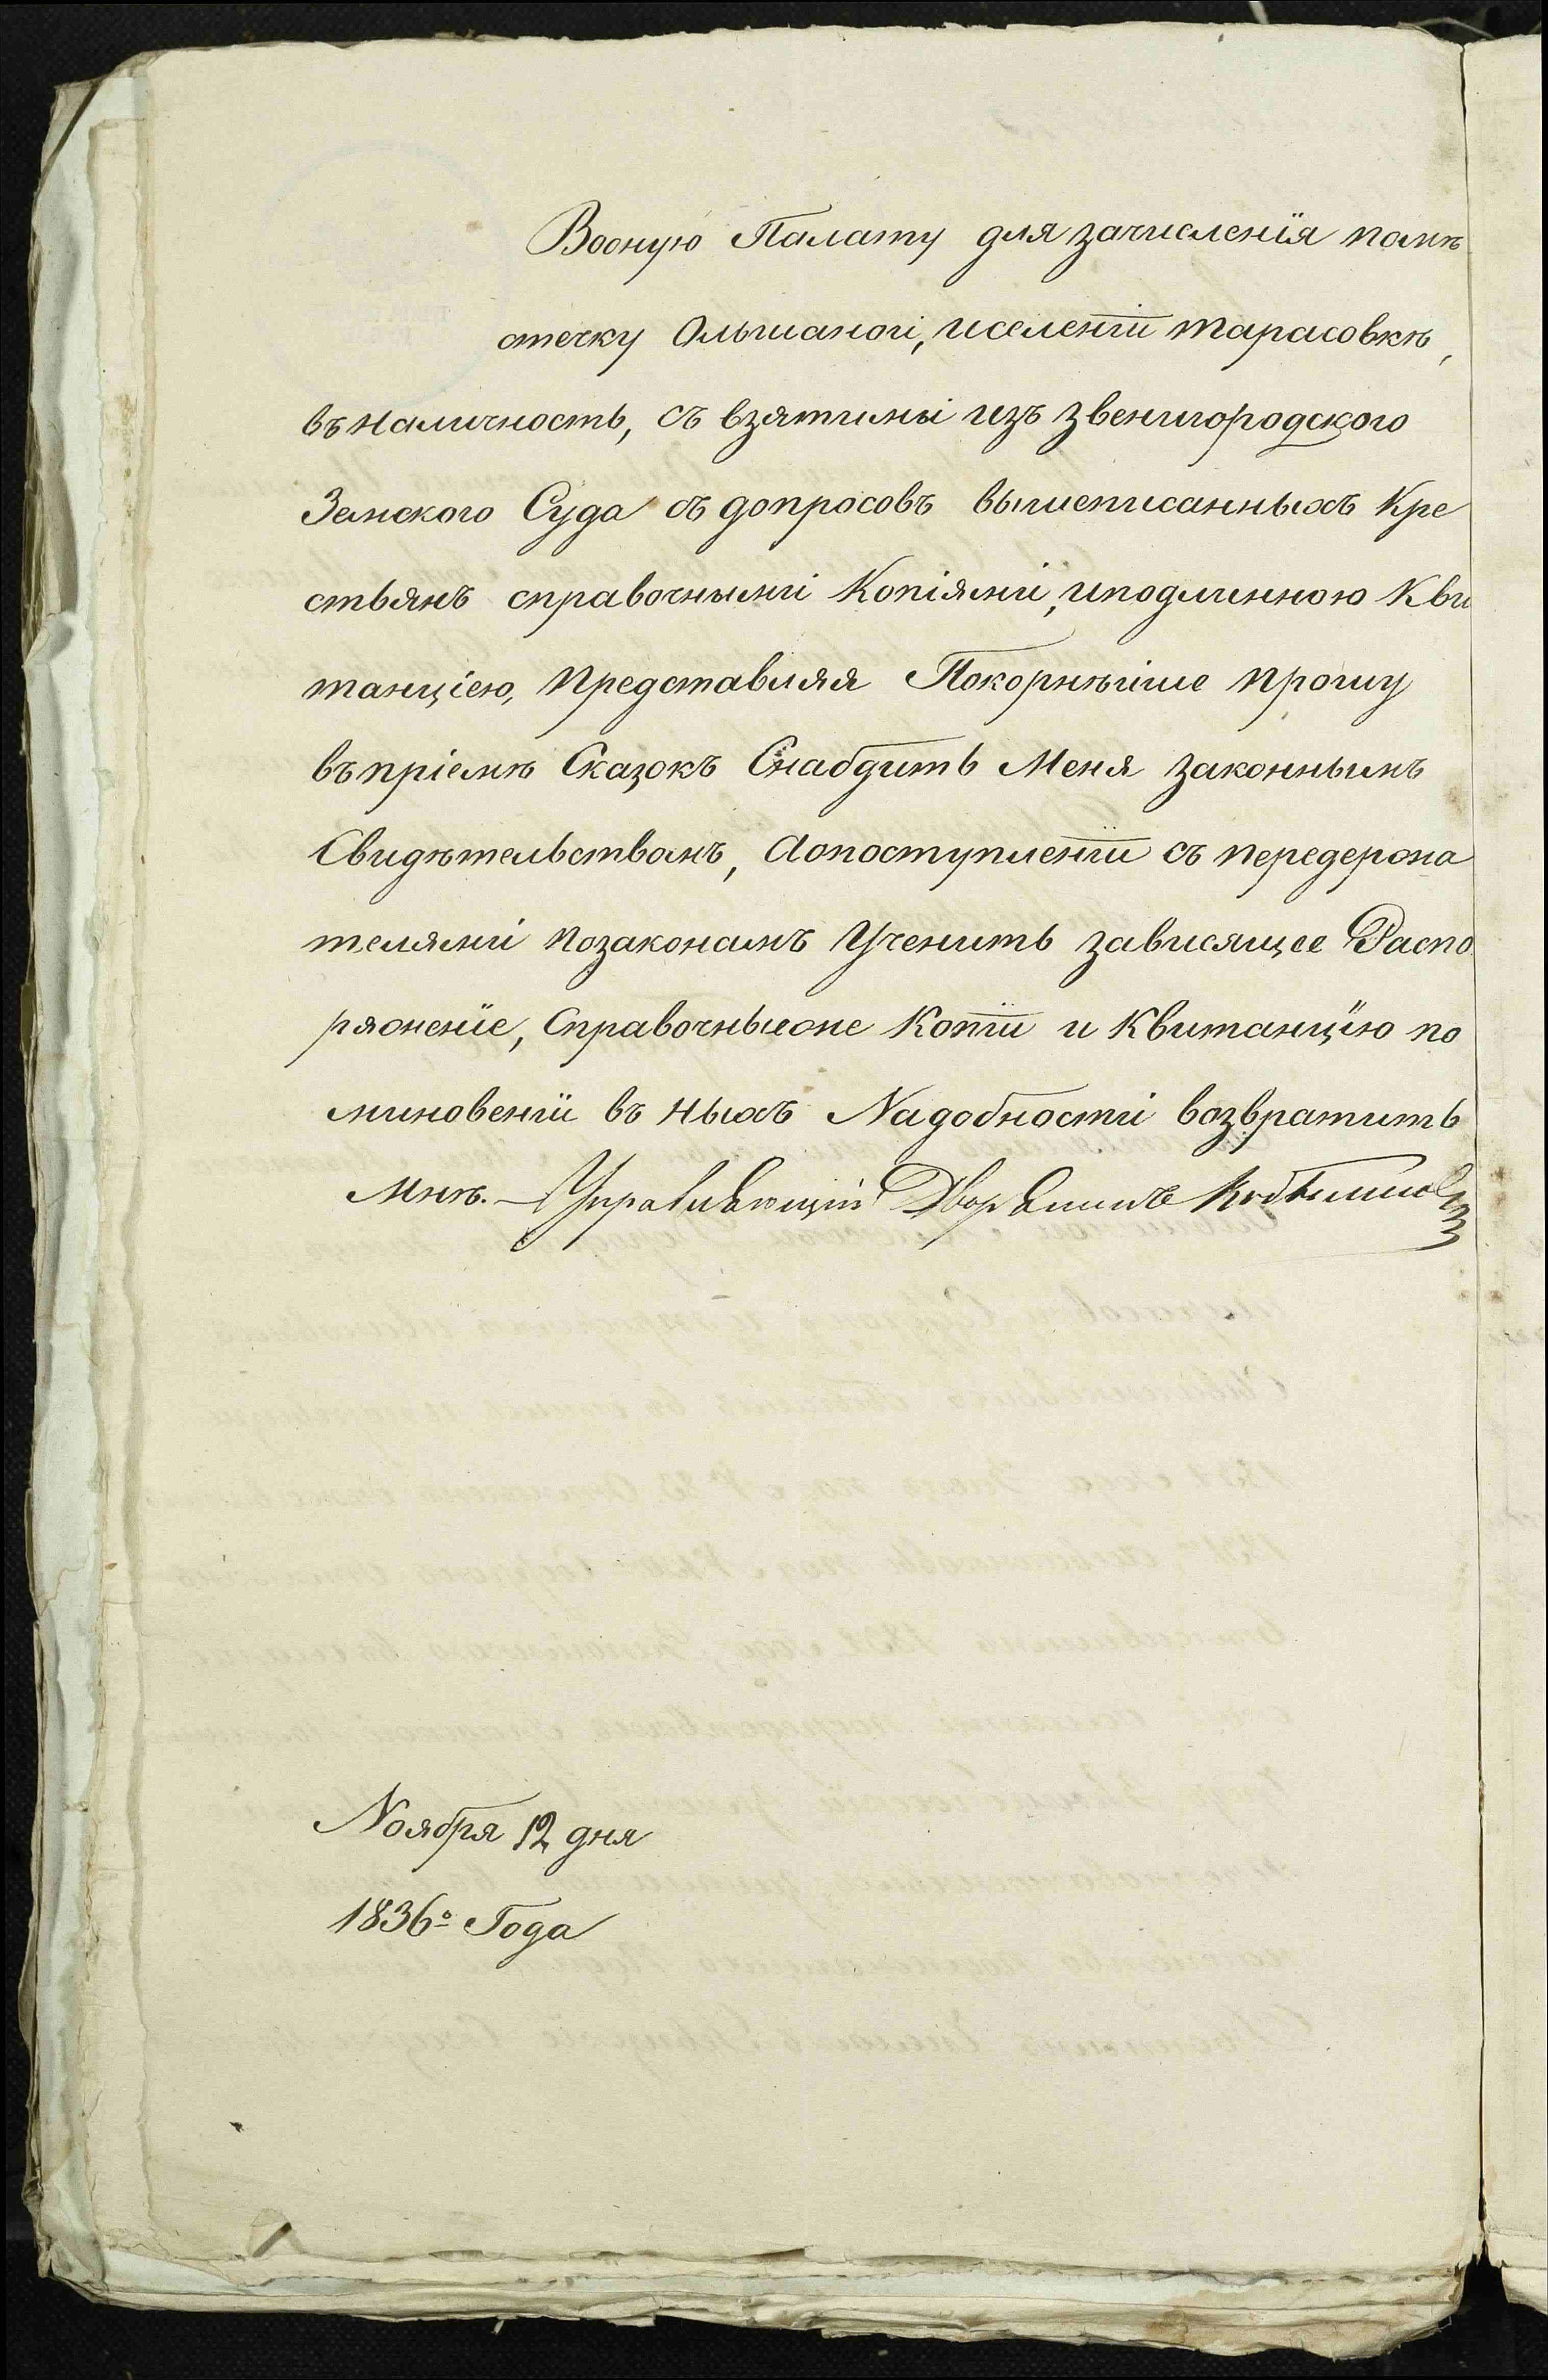 Вооную Палату для зачисленїя помѣ
стечку Ольшаной, иселенїи тарасовкѣ,
въ наличность, съ взятимы изъ звенигородского
Земского Суда съ допросовъ вышеписанныхъ Кре
стьянъ справочнымі Копіямі, иподлинною Кви
танціею, представляя Покорнѣйше прошу
въ пріемѣ Сказокъ Снабдить Меня законнымъ
Свидѣтельствомъ, Аопоступленїи съ передержа
телямі позаконамъ Учеnить зависящее Распо
ряженїе, Справочныеже Копїи и Квитанцїю по
миновенїи въ ныхъ Надобності возвратить
Мнѣ. Управляющій Дворянинъ
Ноября 12 дня
1836º Года